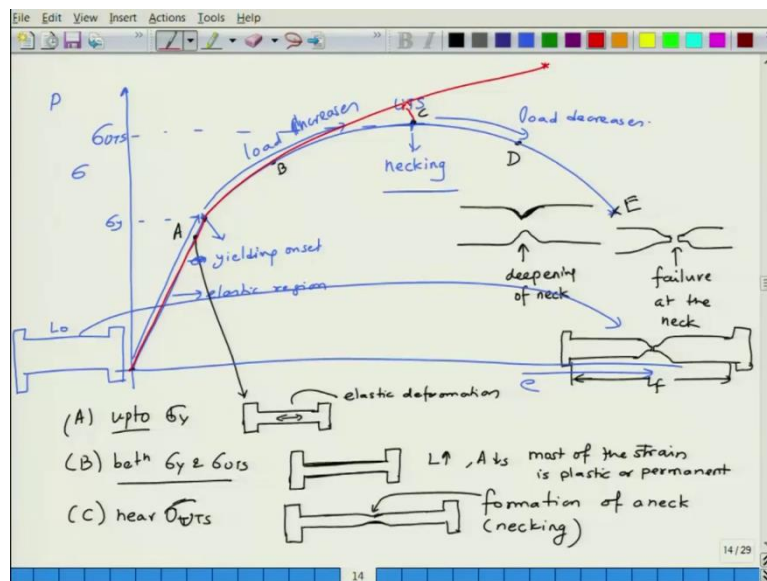 File Edit View Insert Actions Tools Help
P
σUTS
σ
σy
load increases
UTS
C
load decreases.
B
necking
D
E
A
yielding onset
elastic region
deepening
of neck
failure
at the
neck
Lo
e
f
elastic deformation
(A) upto σy
(B) beth σy & σUTS
L↑ , A↓s most of the strain
is plastic or permanent
(C) near σUTS
formation of a neck
(necking)
14/29
14